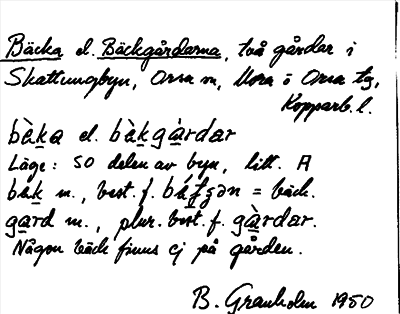 Bäcka el. Bäckgårdarna, två gårdar i
Skattungbyn, Orsa sn, Mora o Orsa tg,
Kopparb. l.
bὰka el. bὰkgὰrdar
Läge: SO delen av byn, litt. A
bak m., best. f. = bäck.
gard m., plur. best. f. gὰrdar.
Någon bäck finns ej på gården.
B. Granholm 1950